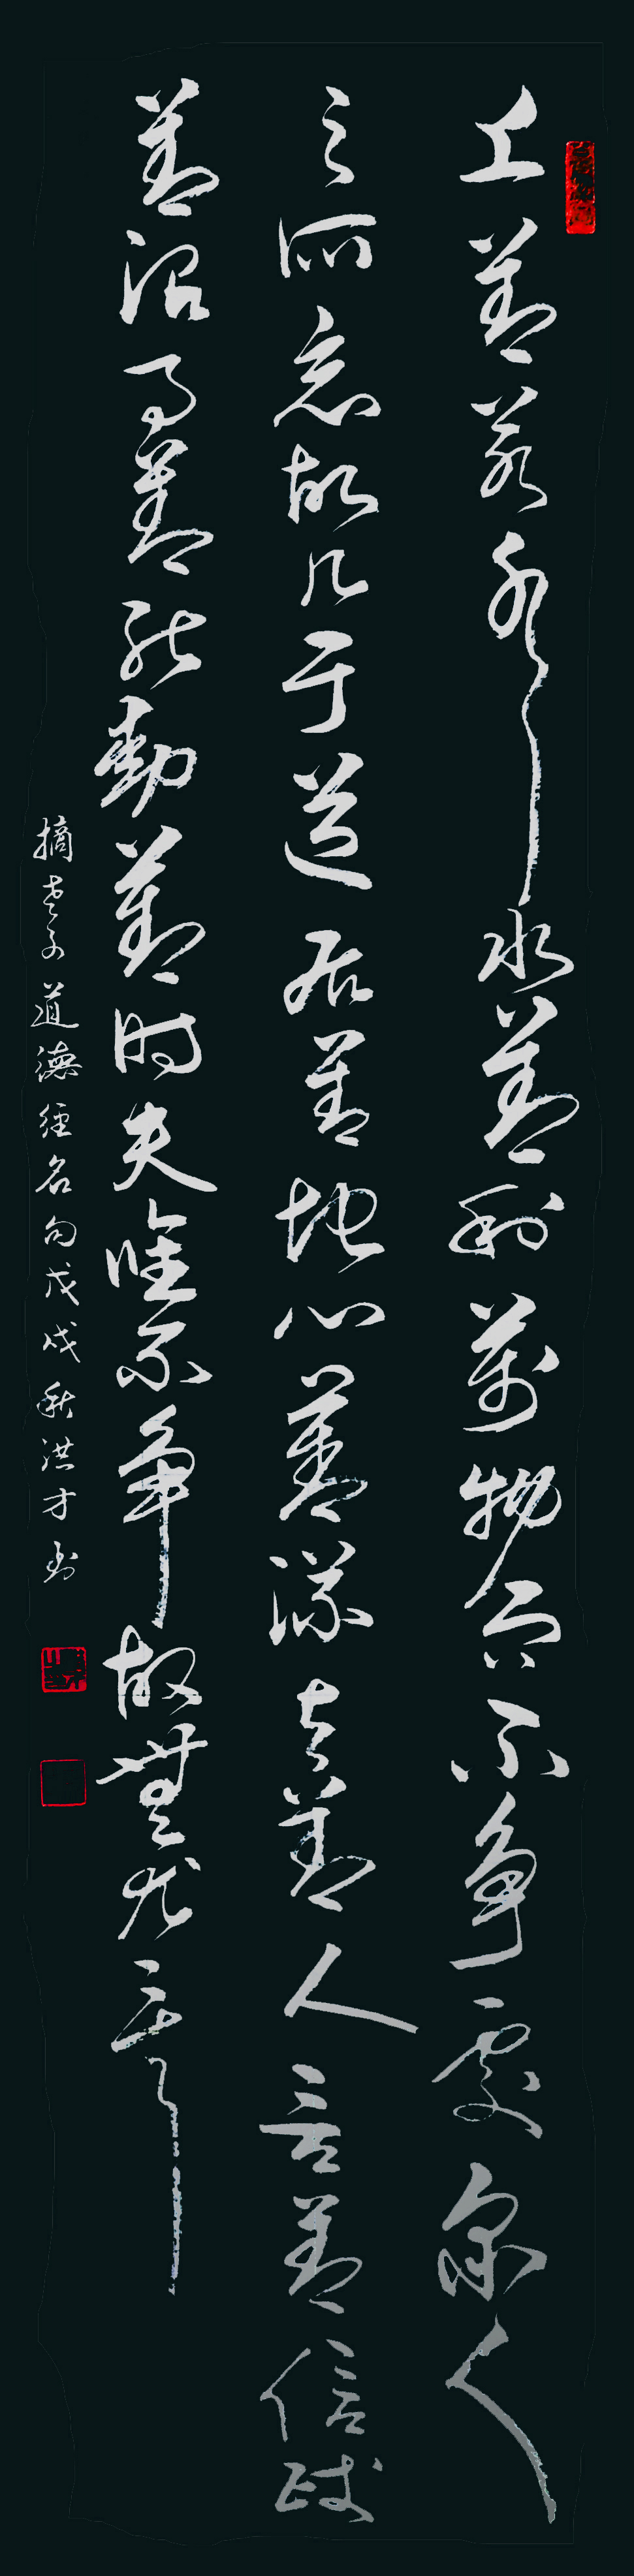 上善若水水善利萬物而不争處眾人
之所惡故几于道居善地心善淵与善人言善信政
善治事善能動善时夫唯不争故無尤
摘老子道德經名句戊戌秋洪才书